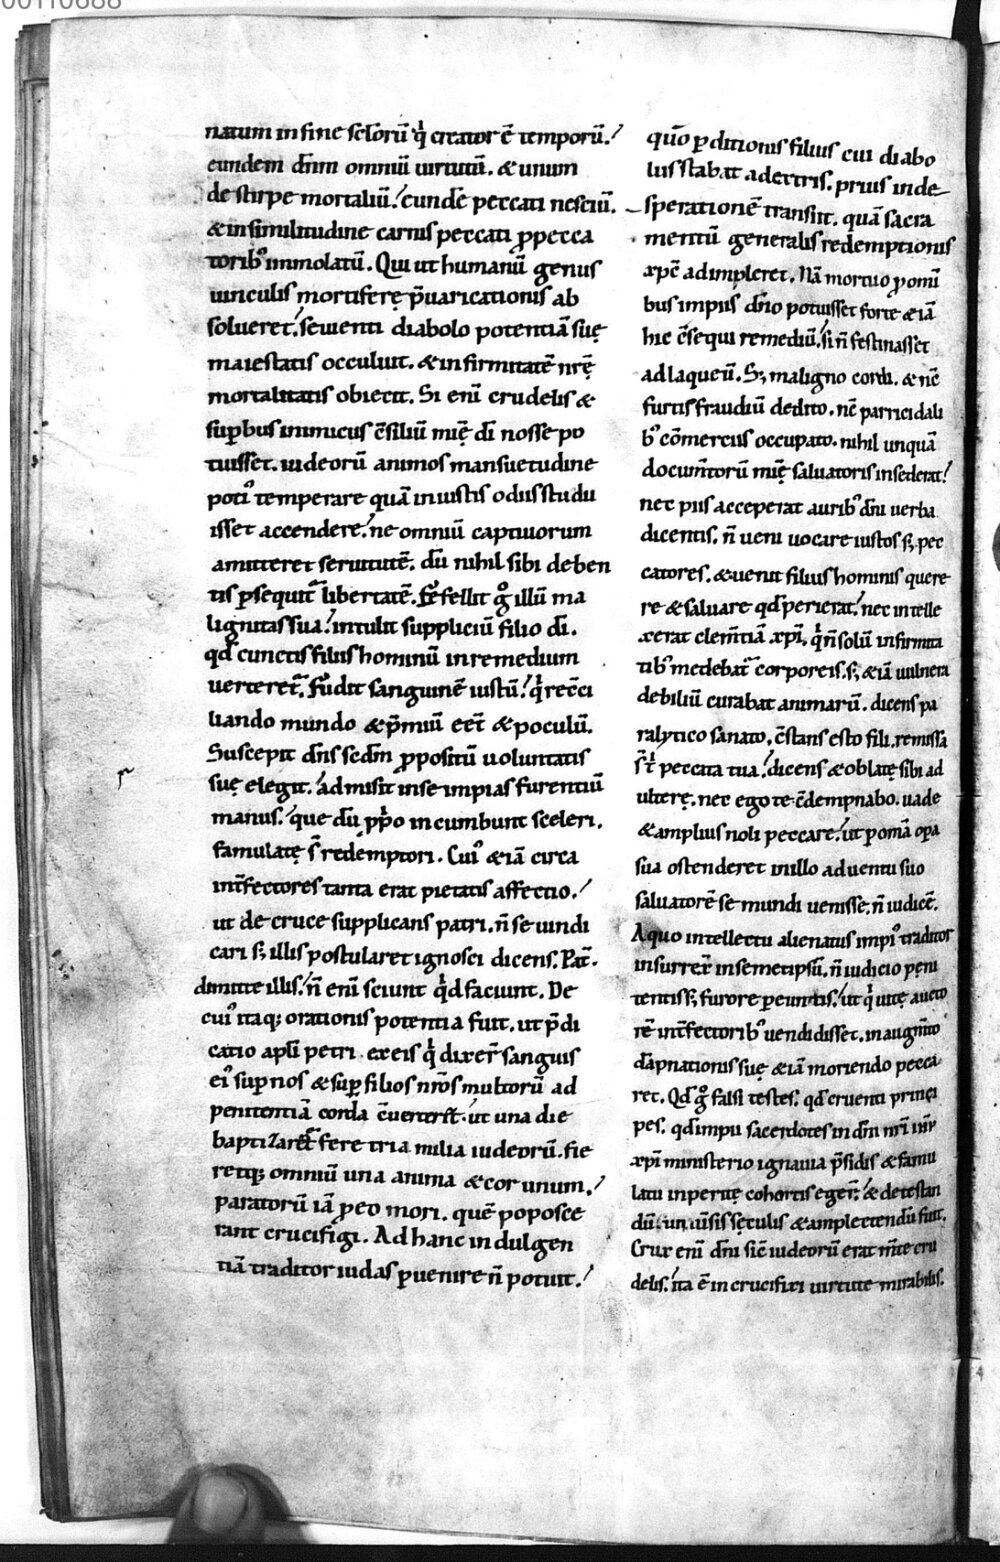 00110688
natum in fine sclorũ q̇ creator ẽ temporũ.
eundem dñm omniũ uirtutũ. & unum
de stirpe mortaliũ. eundẽ peccati nesciũ.
& in similitudine carnis peccati ꝓ pecca
torib; immolatũ. Qui ut humanũ genus
uinculis mortiferę p̃uaricationis ab
solueret. seuienti diabolo potentiã suę
maiestatis occuluit. & infirmitatẽ nr̃ę
mortalitatis obiecit. Si enĩ crudelis &
supbus inimicus c̃siliũ mię dĩ nosse po
tuisset. iudeorũ animos mansuetudine
poti᷒ temperare quã iniustis odiis studu
isset accendere. ne omniũ captiuorum
amitteret seruitutẽ. dũ nihil sibi deben
tis ꝑsequit᷑ libertatẽ. Fefellit g̊ illũ ma
lignitas sua. intulit suppliciũ filio dĩ.
qd̃ cunctis filiis hominũ in remedium
uerteret᷑. Fudit sanguinẽ iustũ. q̇ recc̃i
liando mundo & p̃miũ eet᷑ & poculũ.
Suscepit dñs scd̃m ꝓpositũ uoluntatis
suę elegit. admisit in se impias furentiũ
manus. que dũ ꝓp̱o incumbunt sceleri.
famulatę s̃ redemptori. Cui᷒ & iã circa
int̃fectores tanta erat pietatis affectio.
ut de cruce supplicans patri. ñ se uindi
cari s; illis postularet ignosci dicens. Pat̃.
dimitte illis. ñ enĩ sciunt q̇d faciunt. De
cui᷒ itaq; orationis potentia fuit. ut p̃di
catio apłi petri ex eis q̇ dixer̃ sanguis
ei᷒ sup nos & sup filios nr̃os multorũ ad
penitentiã corda c̃uerter&. ut una die
baptizarẽt fere tria milia iudeorũ. fie
retq; omniũ una anima & cor unum.
paratorũ iã ꝓ eo mori. quẽ poposce
rant crucifigi. Ad hanc indulgen
tiã traditor iudas ꝑuenire ñ potuit.
quõ ꝑditionis filius cui diabo
lus stabat a dextris. prius in de
sperationẽ transiit. quã sacra
mentũ generalis redemptionis
xp̃c adimpleret. Nã mortuo ꝓ omĩ
bus impiis dño potuisset forte & iã
hic c̃sequi remediũ. si ñ festinasset
ad laqueũ. S; maligno cordi. & nc̃
furtis fraudiũ dedito. nc̃ parricidali
b; cõmerciis occupato. nihil unquã
documtorũ mię saluatoris insederat.
nec piis acceperat aurib; dñi uerba
dicentis. ñ ueni uocare iustos s; pec
catores. & uenit filius hominis quere
re & saluare qd perierat. nec intelle
xerat clem̃tiã xp̃i. q̇ ñ solũ infirmita
tib; medebat᷑ corporeis. s; & iã uulnera
debiliũ curabat animarũ. dicens pa
ralytico sanato. c̃stans esto fili. remissa
s̃t peccata tua. dicens & oblatę sibi ad
ulterę. nec ego te c̃dempnabo. uade
& amplius noli peccare. ut ꝑ omã opa
sua ostenderet in illo aduentu suo
saluatorẽ se mundi uenisse. ñ iudicẽ.
A quo intellectu alienatus impi᷒ traditor
insurrex̃ in semetipsũ. ñ iudicio peni
tentis s; furore pereuntis. ut q̇ uitę aucto
rẽ int̃fectorib; uendidisset. in augm̃to
dãpnationis suę & iã moriendo pecca
ret. Qd̃ g̊ falsi testes. qd̃ cruenti princi
pes. qd̃ impii sacerdotes in dñm nr̃m ihm̃
xp̃m ministerio ignauia p̃sidis & famu
latu inperitę cohortis eger̃. & detestan
dũ uniũsis sęculis & amplectendũ fuit.
Crux enĩ dñi sic̃ iudeorũ erat m̃te cru
delis. ita ẽ in crucifixi uirtute mirabilis.